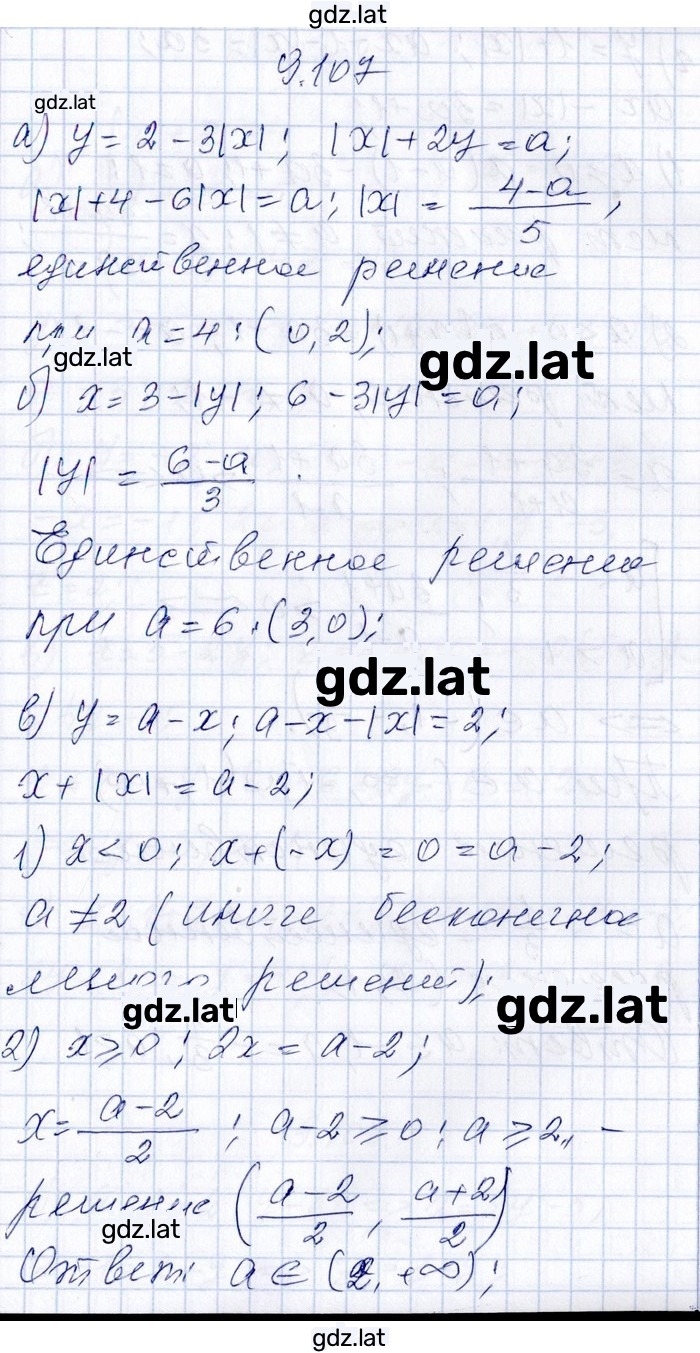 gdz.lat
9.107
gdz.lat
а) y = 2 - 3|x|; |x| + 2y = a;
|x| + 4 - 6|x| = a; |x| = (4-a)/5,
единственное решение
при a = 4: (0, 2);
gdz.lat
gdz.lat
б) x = 3 - |y|; 6 - 3|y| = a;
|y| = (6-a)/3.
Единственное решение
при a = 6: (3, 0);
gdz.lat
в) y = a - x; a - x - |x| = 2;
x + |x| = a - 2;
1) x < 0; x + (-x) = 0 = a - 2;
a ≠ 2 (иначе бесконечно
много решений);
gdz.lat
gdz.lat
2) x ≥ 0; 2x = a - 2;
x = (a-2)/2; a - 2 ≥ 0; a ≥ 2, -
решение ((a-2)/2, (a+2)/2)
gdz.lat
Ответ: a ∈ (2, +∞);
gdz.lat